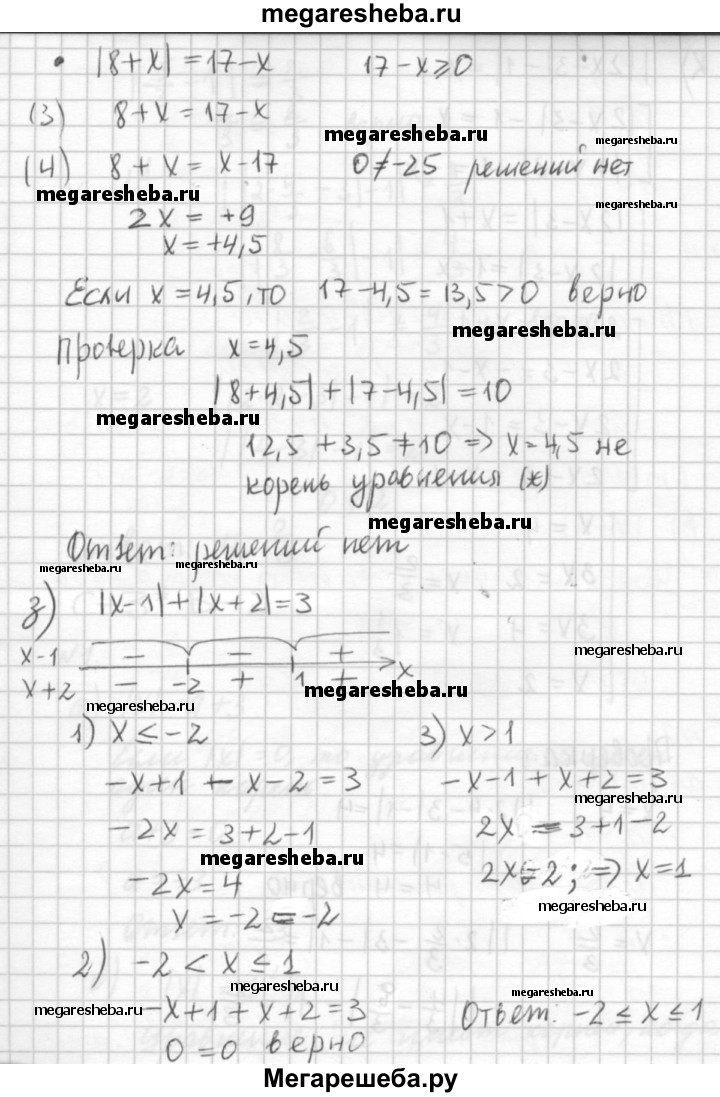 megaresheba.ru
• |8+x| = 17-x 17-x⩾0
(3) 8+x = 17-x
megaresheba.ru megaresheba.ru
(4) 8+x = x-17 0≠-25 решений нет
megaresheba.ru megaresheba.ru
2x = +9
x = +4,5
Если x = 4,5, то 17-4,5 = 13,5 > 0 верно
megaresheba.ru
Проверка x = 4,5
|8+4,5| + |7-4,5| = 10
megaresheba.ru
12,5 + 3,5 ≠ 10 => x = 4,5 не
корень уравнения (ж)
megaresheba.ru
Ответ: решений нет
megaresheba.ru megaresheba.ru
з) |x-1|+|x+2|=3
x-1 − − + megaresheba.ru
x+2 − -2 + 1 + x
megaresheba.ru megaresheba.ru
1) x ≤ -2 3) x > 1
-x+1 - x-2 = 3 -x-1 + x+2 = 3
megaresheba.ru
-2x = 3+2-1 2x = 3+1-2
megaresheba.ru
-2x = 4 2x = 2; => x = 1
megaresheba.ru
x = -2 = -2
2) -2 < x ≤ 1
megaresheba.ru
megaresheba.ru -x+1 + x+2 = 3 Ответ: -2 ≤ x ≤ 1
0 = 0 верно
Мегарешеба.ру